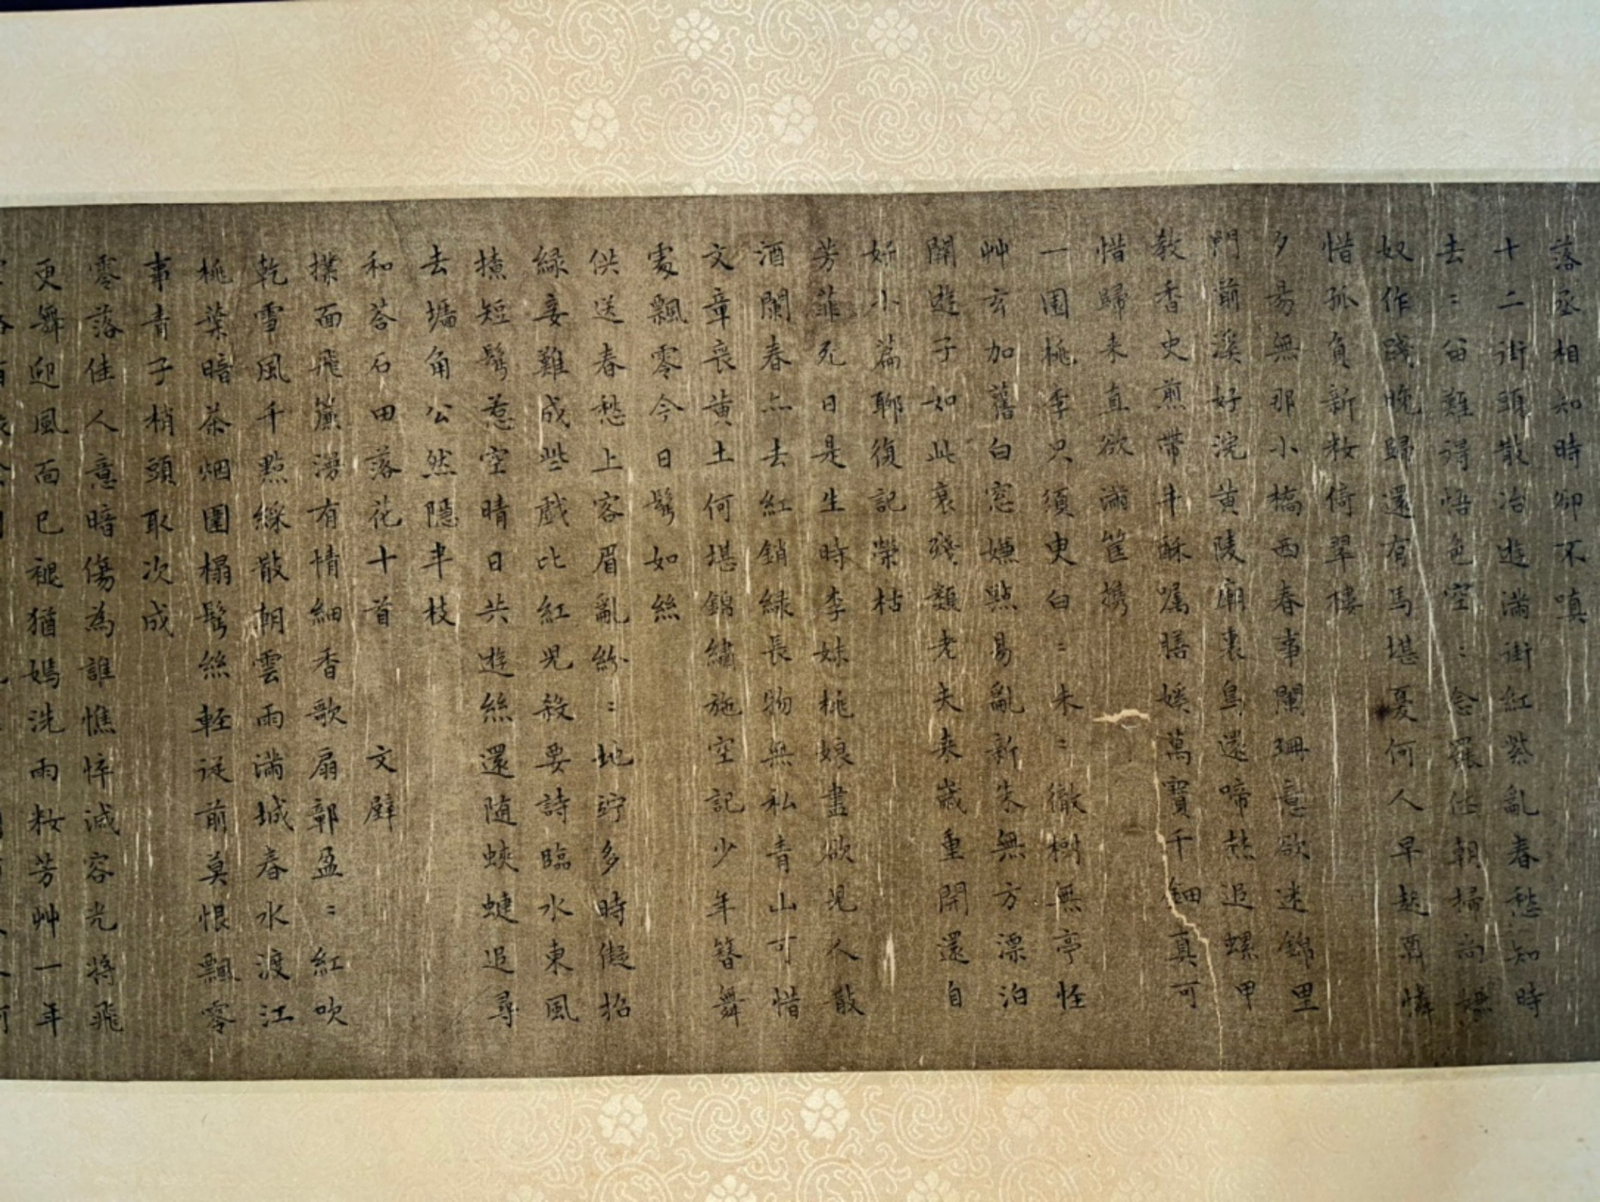 落丞相知時卿不嗔
十二街頭散冶遊滿街紅紫亂春愁知時
去〻留難得悟色空〻念罷休朝掃尚嫌
奴作踐晚歸還有馬堪憂何人早起酬憐
惜孤負新粧倚翠樓
夕昜無那小橋西春事闌珊意欲迷錦里
門前溪好浣黃陵廟裏鳥還啼焚追螺甲
教香史煎帶牛酥囑膳媛萬寶千鈿真可
惜歸來直欲滿筐攜
一園桃李只須臾白〻朱〻徹樹無亭怪
艸玄加舊白窓嫌點易亂新朱無方漂泊
關遊子如此衰殘類老夫來歲重開還自
好小篇聊復記榮枯
芳菲死日是生時李妹桃娘盡欲兒人散
酒闌春亦去紅銷綠長物無私青山可惜
文章喪黃土何堪錦繡施空記少年簪舞
處飄零今日鬢如絲
供送春愁上客眉亂紛〻地竚多時儗招
綠妾難成些戲比紅兒殺要詩臨水東風
撩短鬢惹空晴日共遊絲還隨蛺蝶追尋
去墻角公然隱半枝
和荅石田落花十首 文壁
撲面飛簾漫有情細香歌扇郭盈〻紅吹
乾雪風千點綵散朝雲雨滿城春水渡江
桃葉暗茶烟圍榻鬢絲輕從前莫恨飄零
事青子梢頭取次成
零落佳人意暗傷為誰憔悴減容光將飛
更舞迎風面已褪猶嫣洗雨粧芳艸一年